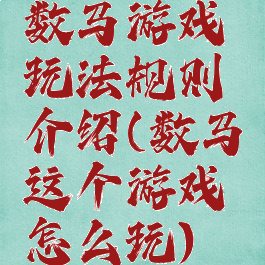 数马游戏
玩法规则
介绍(数马
这个游戏
怎么玩)